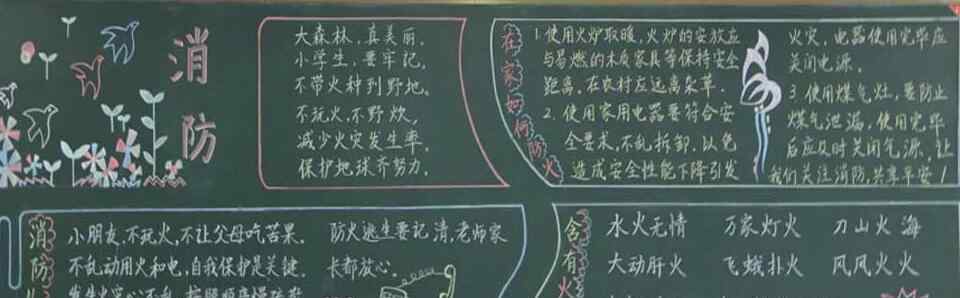 消防
大森林，真美丽，
小学生，要牢记，
不带火种到野地。
不玩火，不野炊，
减少火灾发生率，
保护地球齐努力。
在家如何防火
1.使用火炉取暖，火炉的安放应
与易燃的木质家具等保持安全
距离，在农村应远离柴草.
2.使用家用电器要符合安
全要求，不乱拆卸，以免
造成安全性能下降引发
火灾，电器使用完毕应
关闭电源。
3.使用煤气灶，要防止
煤气泄漏，使用完毕
后应及时关闭气源，让
我们关注消防，共享平安！
消防
小朋友，不玩火，不让父母吃苦果。
不乱动用火和电，自我保护是关键。
防火逃生要记清，老师家
长都放心。
含有火
水火无情 万家灯火 刀山火海
大动肝火 飞蛾扑火 风风火火